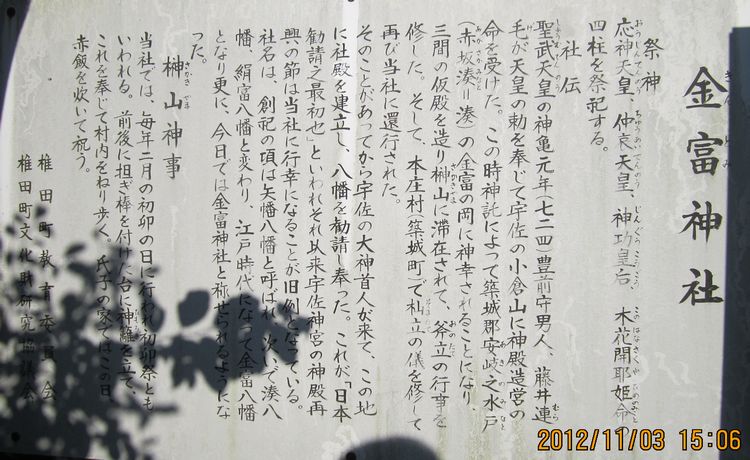 金富神社
きん とみ
祭神
応神天皇、仲哀天皇、神功皇后、木花開耶姫命の
四柱を祭祀する。
社伝
聖武天皇の神亀元年(七二四)豊前守男人、藤井連
毛が天皇の勅を奉じて宇佐の小倉山に神殿造営の
命を受けた。この時神託によって築城郡安岐之水戸
(赤坂湊=湊)の金富の岡に神幸されることになり
三間の仮殿を造り榊山に滞在されて、斧立の行事を
修した。そして、本庄村(築城町で杣立の儀を修して
再び当社に還行された。
そのことがあってから宇佐の大神首人が来て、この地
に社殿を建立し、八幡を勧請し奉った。これが「日本
勧請之最初也」といわれそれ以来宇佐神宮の神殿再
興の節は当社に行幸になることが旧例となっている。
社名は、創祀の頃は矢幡八幡と呼ばれ、次いで湊八
幡、絹富八幡と変わり、江戸時代になって金富八幡
となり更に、今日では金富神社と称せられるようにな
った。
榊山神事
当社では、毎年二月の初卯の日に行われ初卯祭とも
いわれる。前後に担ぎ棒を付けた台に神籬を立て、
これを奉じて村内をねり歩く。氏子の家ではこの日
赤飯を炊いて祝う。
椎田町教育委員会
椎田町文化財研究協議会
2012/11/03 15:06